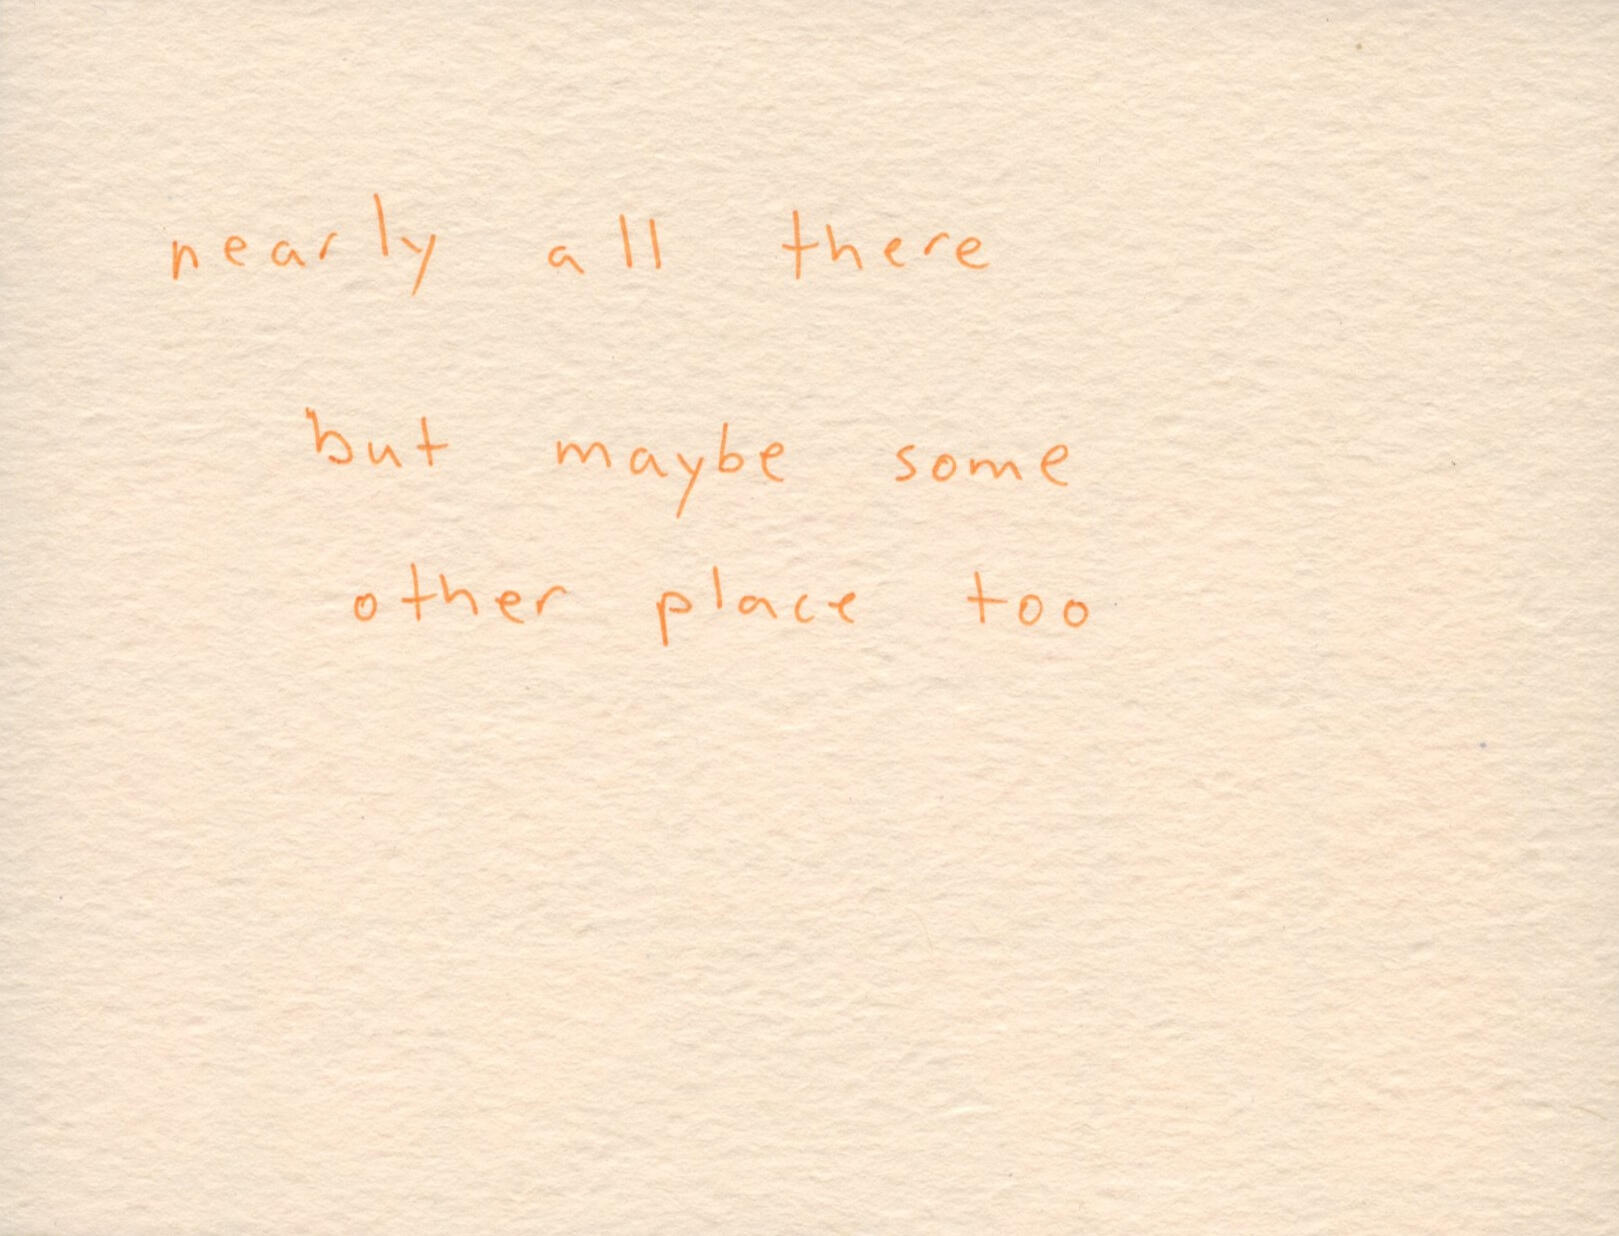 nearly all there
but maybe some
other place too